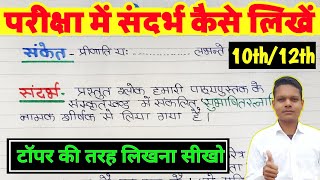 परीक्षा में संदर्भ कैसे लिखें
10th/12th
संकेत - प्रीणाति यः लभन्ते
संदर्भ - प्रस्तुत श्लोक हमारी पाठ्यपुस्तक के
संस्कृतखण्ड में संकलित सुभाषितरत्ना
नामक शीर्षक से लिया गया है।
टॉपर की तरह लिखना सीखो